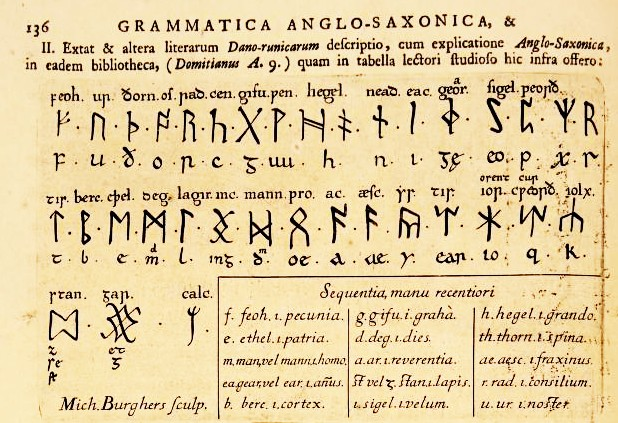 136 GRAMMATICA ANGLO-SAXONICA, &
II. Extat & altera literarum Dano-runicarum deſcriptio, cum explicatione Anglo-Saxonica,
in eadem bibliotheca, (Domitianus A. 9.) quam in tabella lectori ſtudioſo hic infra offero:
feoh. ur. ðorn. oſ. rad. cen. gifu. pen. hegel. nead. eac. geor. ſigel. peorð.
ᚠ ᚢ ᚦ ᚩ ᚱ ᚳ ᚷ ᚹ ᚻ ᚾ ᛁ ᛋ ᛈ ᛉ
f. u. ð. o. r. c. g. uu. h. n. i. gę. eo. p. x. r
orent cur
tir. berc. eþel. deg. lagır. inc. mann. pro. ac. æſc. ẏr. tir. ior. cpeorð. iolx.
ᛏ ᛒ ᛖ ᛗ ᛚ ᛝ ᛞ ᛟ ᚪ ᚫ ᛠ ᛡ
t. b. e. m. l. ing. ð. oe. a. ae. y. ear. io. q. k.
ſtan. gar. calc.
Sequentia, manu recentiori
f. feoh. ı. pecunia. g. gifu. ı. graha. h. hegel. ı. grando.
e. ethel. ı. patria. d. deg. ı. dies. th. thorn. ı. spina.
m. man, vel mann. ı. homo. a. ar. ı. reverentia. ae. aesc. ı. fraxinus.
ea. gear, vel ear. ı. añus. ſt vel z. ſtan. ı. lapis. r. rad. ı. consilium.
b. berc. ı. cortex. ı. sigel. ı. velum. u. ur. ı. noſter.
Mich. Burghers ſculp.